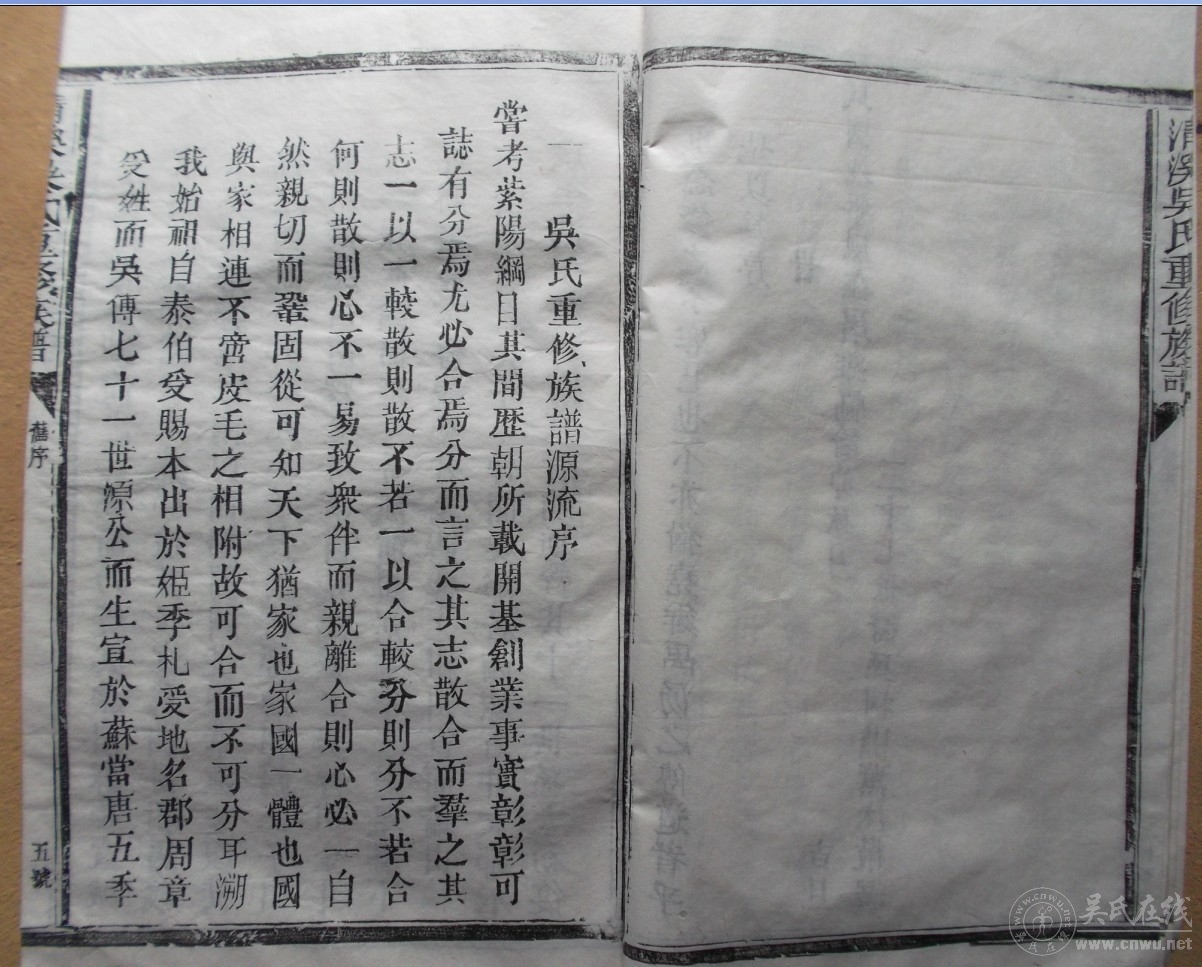 清溪吳氏重修族譜
吳氏重修族譜源流序
嘗考紫陽綱目其間歷朝所載開基創業事實彰彰可
誌有分焉尤必合焉分而言之其志散合而羣之其
志一以一較散則散不若一以合較分則分不若合
何則散則心不一易致衆伴而親離合則心必一自
然親切而鞏固從可知天下猶家也家國一體也國
與家相連不啻皮毛之相附故可合而不可分耳溯
我始祖自泰伯受賜本出於姬季札受地名郡周章
受姓而吳傳七十一世源公而生宣於蘇當唐五季
吳氏重修族譜
舊序
五號
吳氏在线
www.cnwu.net